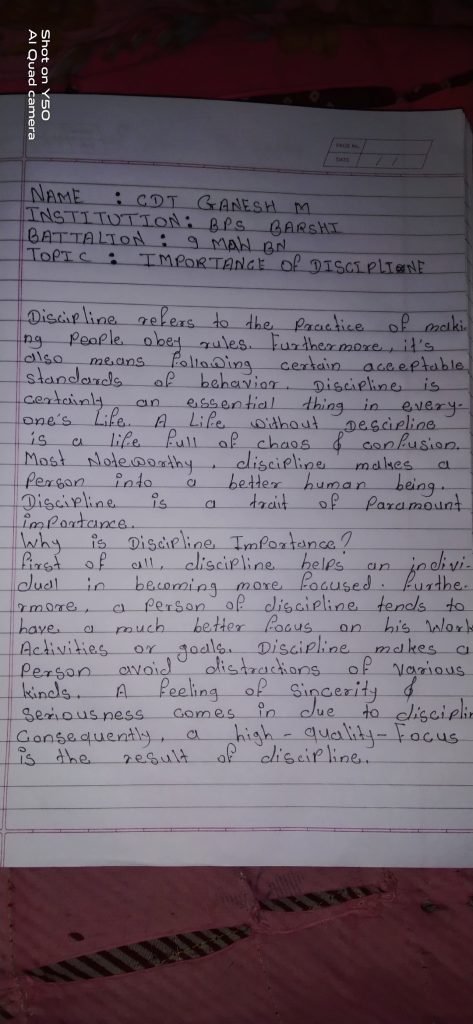 Shot on Y50
AI Quad camera
PAGE No.
DATE
NAME : CDT GANESH M
INSTITUTION: BPS BARSHI
BATTALION : 9 MAH BN
TOPIC : IMPORTANCE OF DISCIPLINE
Discipline refers to the Practice of maki-
ng People obey rules. Furthermore, it's
also means following certain acceptable
standards of behavior. Discipline is
certainly an essential thing in every-
one's Life. A Life without Descipline
is a life full of chaos & confusion.
Most Noteworthy, discipline makes a
Person into a better human being.
Discipline is a trait of Paramount
importance.
Why is Discipline Importance?
First of all, discipline helps an indivi-
dual in becoming more focused. Furthe-
rmore, a Person of discipline tends to
have a much better focus on his Work
Activities or goals. Discipline makes a
Person avoid distractions of various
kinds. A feeling of Sincerity &
Seriousness comes in due to disciplin
Consequently, a high-quality-Focus
is the result of discipline.